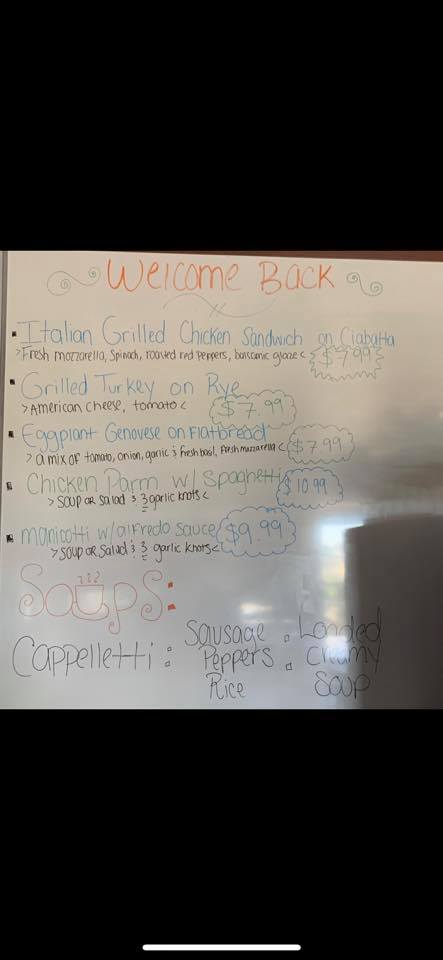 Welcome Back
Italian Grilled Chicken Sandwich on Ciabatta
>Fresh mozzarella, Spinach, roasted red peppers, balscamic glaze< $7.99
Grilled Turkey on Rye
>American cheese, tomato< $7.99
Eggplant Genovese on Flatbread
>a mix of tomato, onion, garlic & fresh basil, fresh mozzarella< $7.99
Chicken Parm w/ Spaghetti $10.99
>soup or salad & 3 garlic knots<
manicotti w/alfredo sauce $9.99
>soup or salad & 3 garlic knots<
Soups:
Cappelletti : Sausage Peppers Rice : Loaded Soup